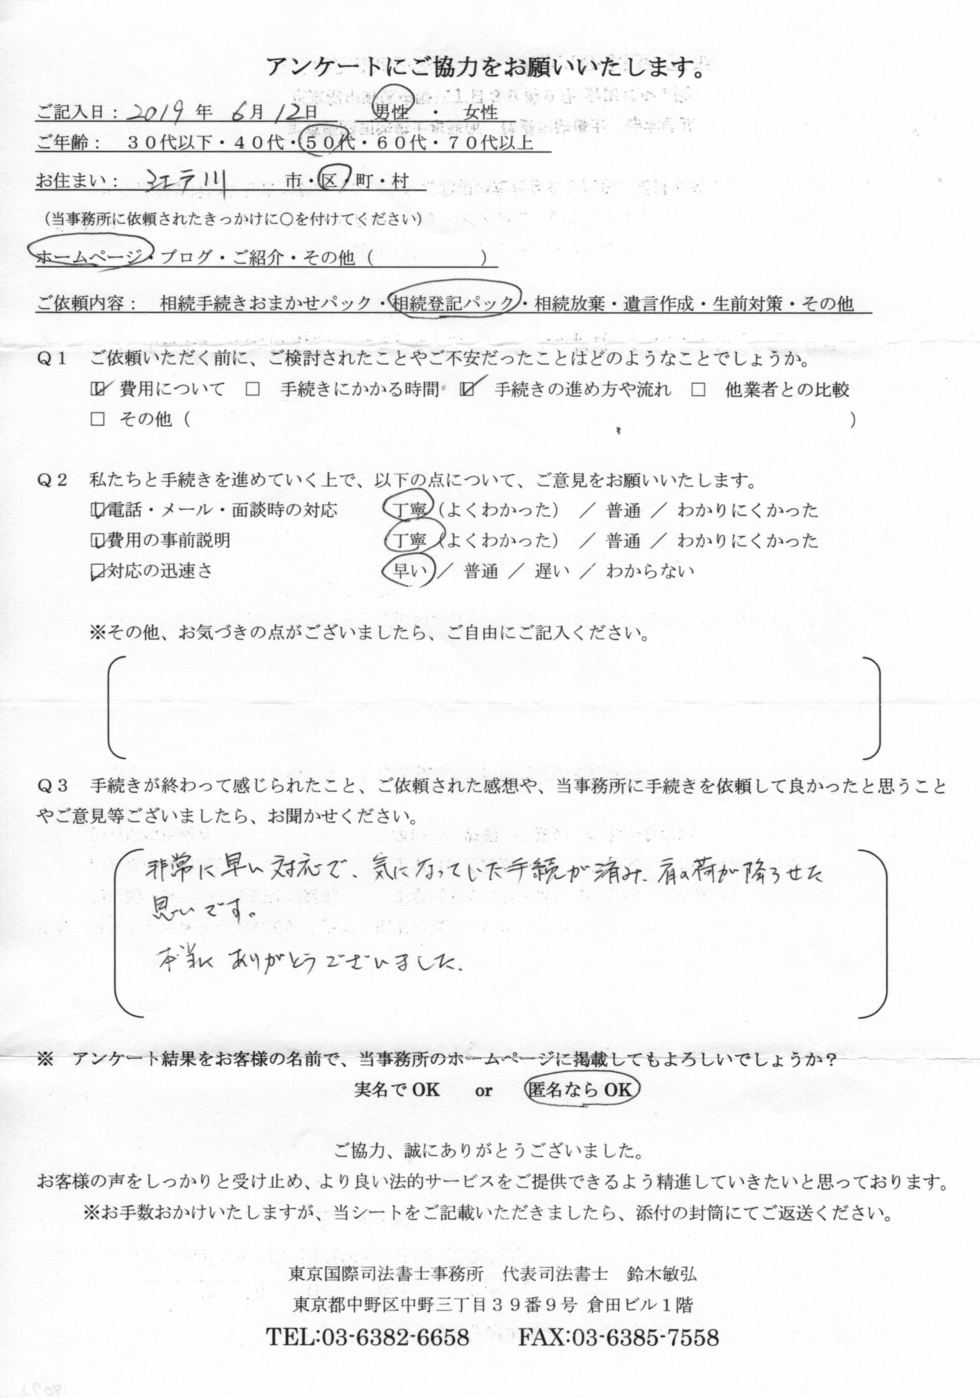 アンケートにご協力をお願いいたします。
ご記入日：2019年 6月 12日 男性 ・ 女性
ご年齢： 30代以下・40代・50代・60代・70代以上
お住まい： 江戸川 市・区・町・村
（当事務所に依頼されたきっかけに○を付けてください）
ホームページ・ブログ・ご紹介・その他（ ）
ご依頼内容： 相続手続きおまかせパック・相続登記パック・相続放棄・遺言作成・生前対策・その他
Q1 ご依頼いただく前に、ご検討されたことやご不安だったことはどのようなことでしょうか。
☑ 費用について □ 手続きにかかる時間 ☑ 手続きの進め方や流れ □ 他業者との比較
□ その他（ ）
Q2 私たちと手続きを進めていく上で、以下の点について、ご意見をお願いいたします。
☑電話・メール・面談時の対応 丁寧（よくわかった） ／ 普通 ／ わかりにくかった
☑費用の事前説明 丁寧（よくわかった） ／ 普通 ／ わかりにくかった
☑対応の迅速さ 早い ／ 普通 ／ 遅い ／ わからない
※その他、お気づきの点がございましたら、ご自由にご記入ください。
Q3 手続きが終わって感じられたこと、ご依頼された感想や、当事務所に手続きを依頼して良かったと思うこと
やご意見等ございましたら、お聞かせください。
非常に早い対応で、気になっていた手続が済み、肩の荷が降ろせた
思いです。
本当に ありがとうございました。
※ アンケート結果をお客様の名前で、当事務所のホームページに掲載してもよろしいでしょうか？
実名で OK or 匿名なら OK
ご協力、誠にありがとうございました。
お客様の声をしっかりと受け止め、より良い法的サービスをご提供できるよう精進していきたいと思っております。
※お手数おかけいたしますが、当シートをご記載いただきましたら、添付の封筒にてご返送ください。
東京国際司法書士事務所 代表司法書士 鈴木敏弘
東京都中野区中野三丁目39番9号 倉田ビル1階
TEL:03-6382-6658 FAX:03-6385-7558